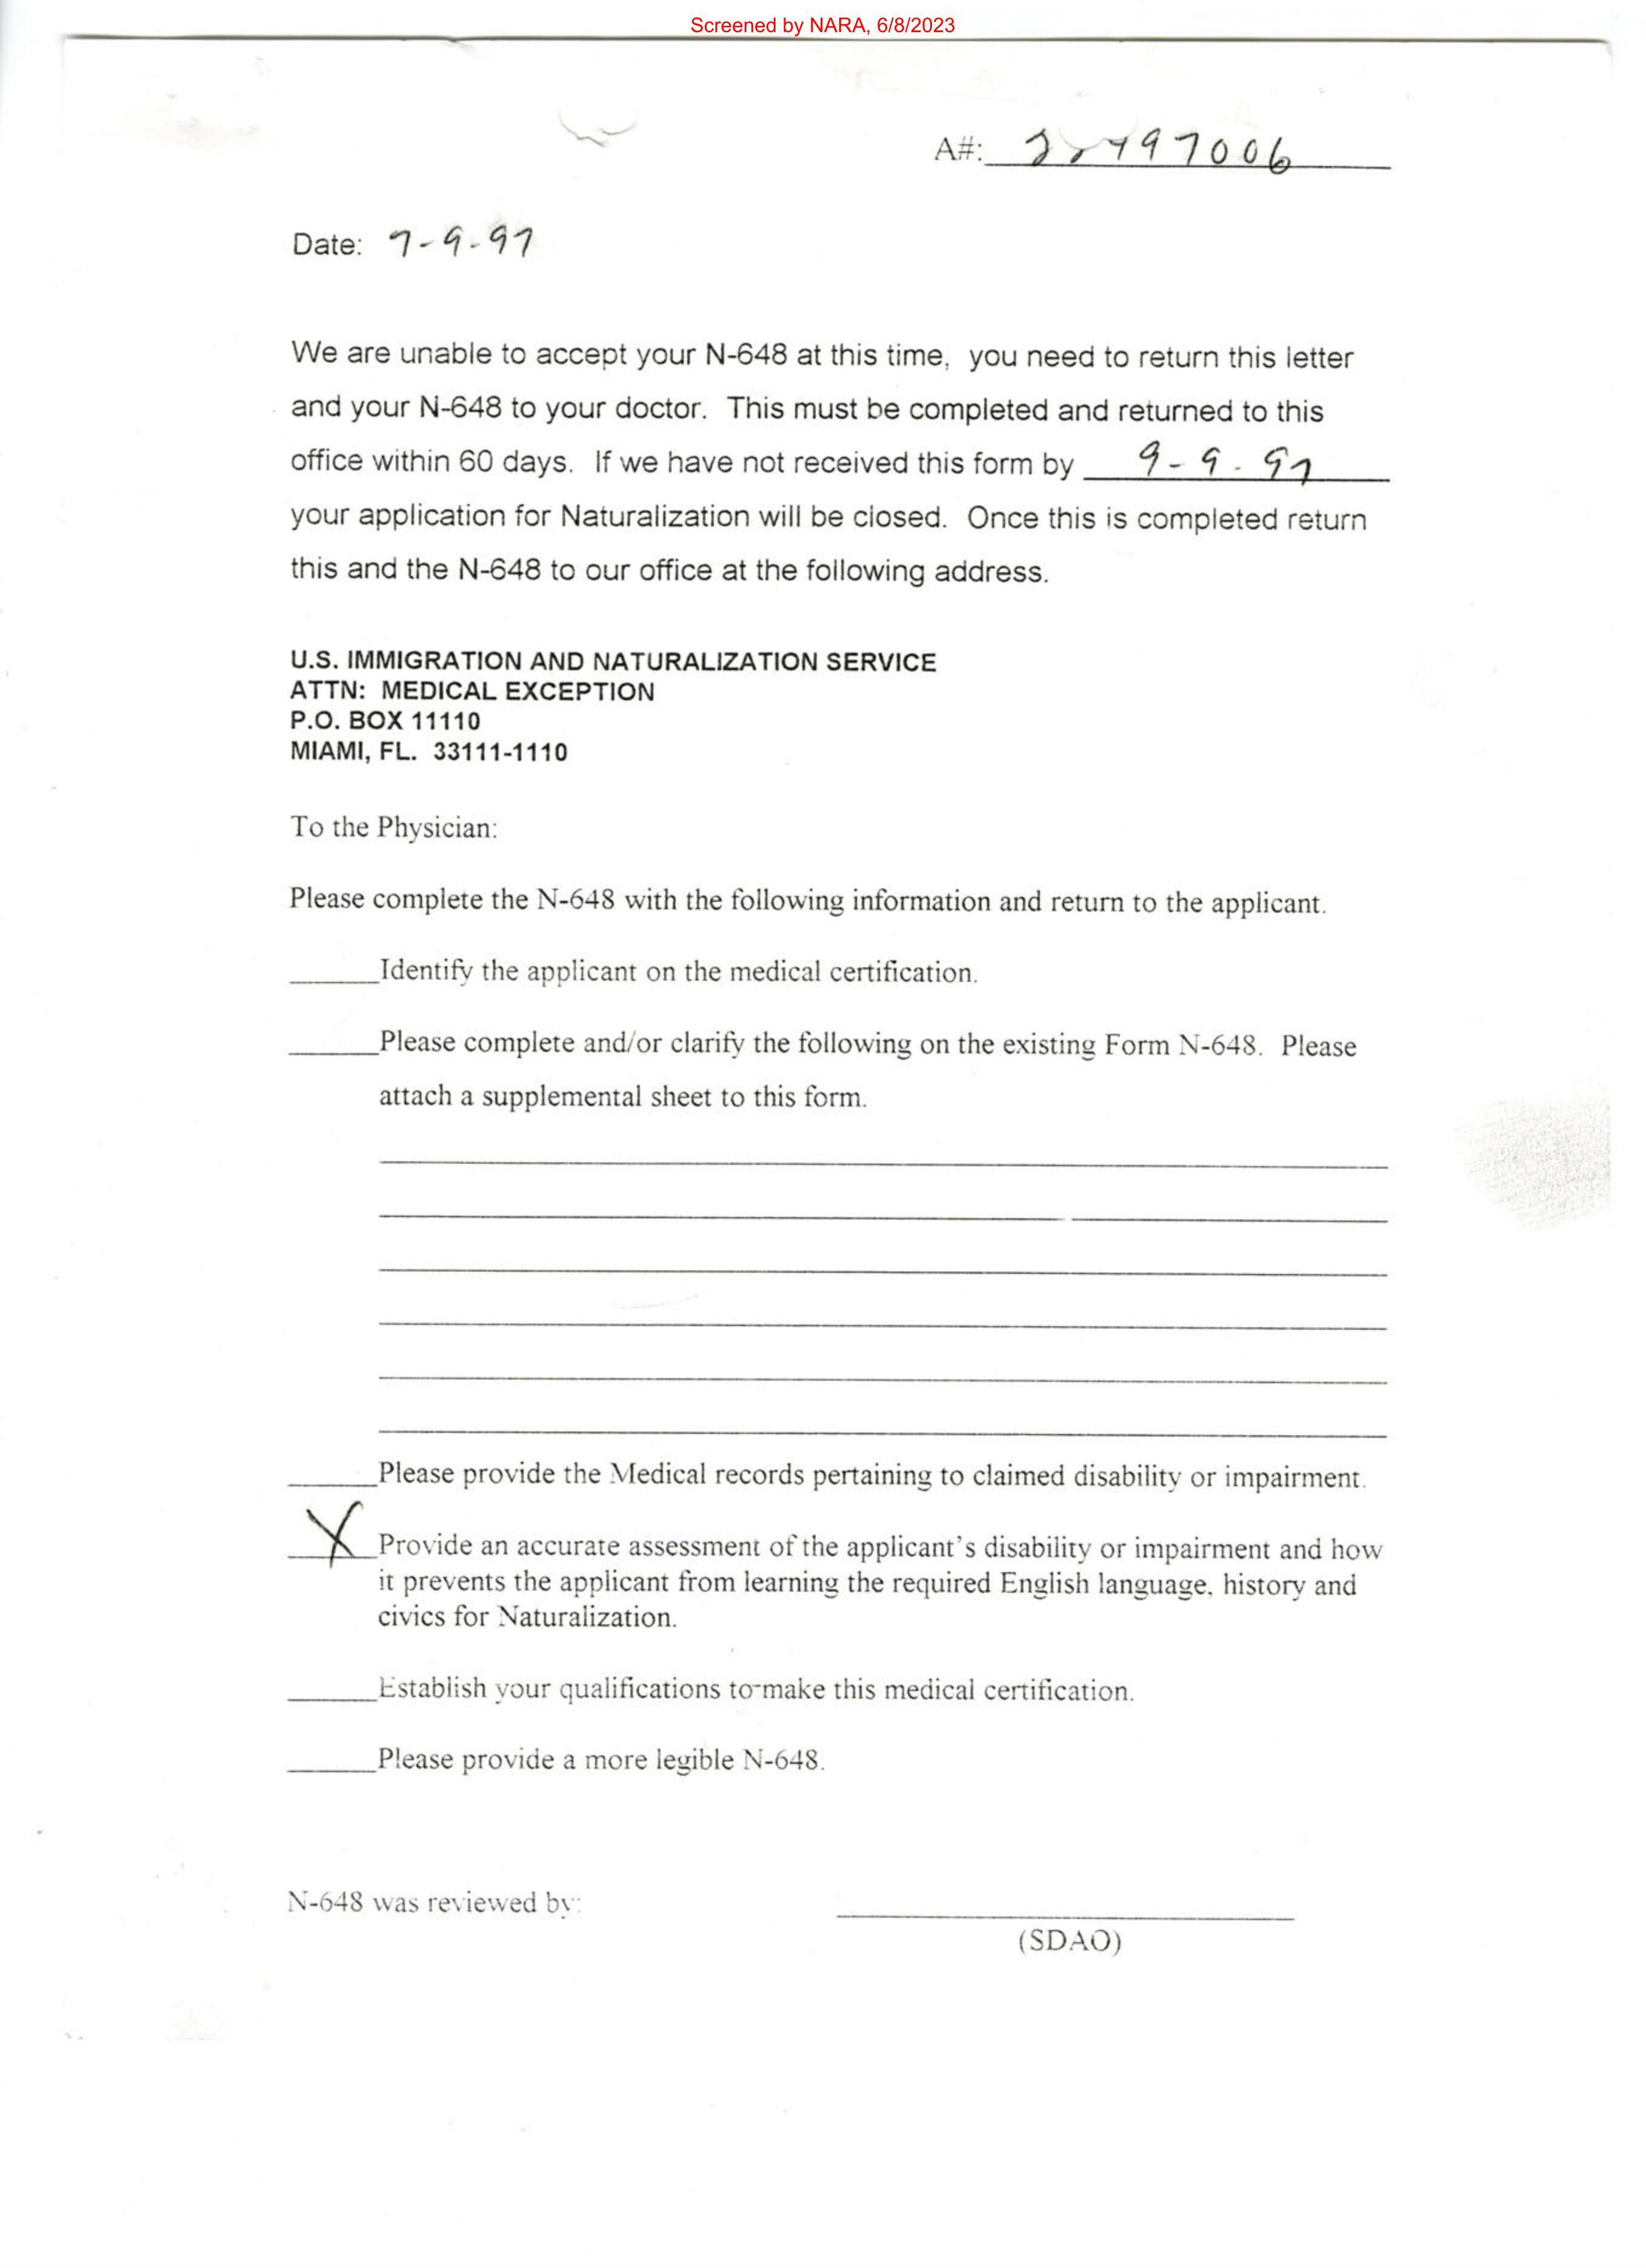 Screened by NARA, 6/8/2023
A#:
Date: 7-9-97
We are unable to accept your N-648 at this time, you need to return this letter
and your N-648 to your doctor. This must be completed and returned to this
office within 60 days. If we have not received this form by 9-9-97
your application for Naturalization will be closed. Once this is completed return
this and the N-648 to our office at the following address.
U.S. IMMIGRATION AND NATURALIZATION SERVICE
ATTN: MEDICAL EXCEPTION
P.O. BOX 11110
MIAMI, FL. 33111-1110
To the Physician:
Please complete the N-648 with the following information and return to the applicant.
Identify the applicant on the medical certification.
Please complete and/or clarify the following on the existing Form N-648. Please
attach a supplemental sheet to this form.
Please provide the Medical records pertaining to claimed disability or impairment.
X Provide an accurate assessment of the applicant's disability or impairment and how
it prevents the applicant from learning the required English language, history and
civics for Naturalization.
Establish your qualifications to make this medical certification.
Please provide a more legible N-648.
N-648 was reviewed by:
(SDAO)